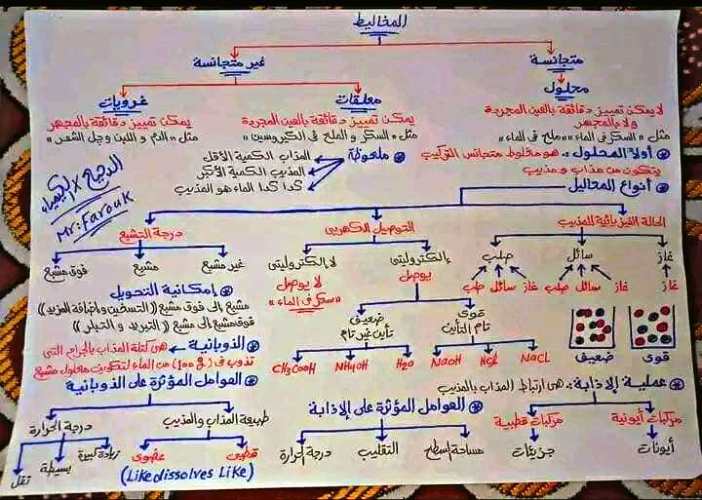 المخاليط
متجانسة
غير متجانسة
محلول
معلقات
غرويات
لا يمكن تمييز دقائقة بالعين المجردة
ولا بالمجهر
مثل "السكر فى الماء" "ملح فى الماء"
يمكن تمييز دقائقة بالعين المجردة
مثل "السكر و الملح فى الكيروسين"
يمكن تمييز دقائقة بالمجهر
مثل "الدم و اللبن وجل الشعر"
أولاً المحلول :- هو مخلوط متجانس التركيب
يتكون من مذاب و مذيب
ملحوظة
المذاب الكمية الأقل
المذيب الكمية الأكبر
كدا كدا الماء هو المذيب
Mr: Farouk
أنواع المحاليل
الحالة الفيزيائية للمذيب
التوصيل الكهربى
درجة التشبع
غاز
سائل
صلب
غاز
غاز سائل صلب
غاز سائل صلب
إلكتروليتى
لا إلكتروليتى
يوصل
لا يوصل
"سكر فى الماء"
غير مشبع
مشبع
فوق مشبع
قوى
تام التأين
ضعيف
تأين غير تام
NaCl
HCl
NaOH
H2O
NH4OH
CH3COOH
قوى
ضعيف
إمكانية التحويل
مشبع إلى فوق مشبع ((التسخين واضافة المزيد))
فوق مشبع إلى مشبع ((التبريد و التبلر))
الذوبانية
هى كتلة المذاب بالجرام التى
تذوب فى (100g) من الماء لتكوين محلول مشبع
عملية الإذابة :- هى ارتباط المذاب بالمذيب
مركبات أيونية
مركبات قطبية
أيونات
جزيئات
العوامل المؤثرة على الإذابة
مساحة السطح
التقليب
درجة الحرارة
العوامل المؤثرة على الذوبانية
طبيعة المذاب والمذيب
درجة الحرارة
قطبى
عضوى
(Like dissolves Like)
زيادة كبيرة
بسيطة
تقل